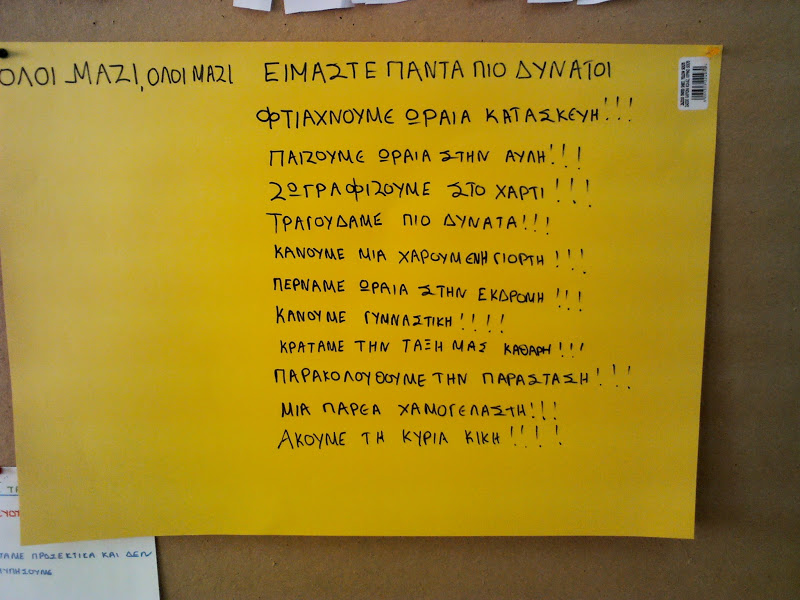 ΟΛΟΙ ΜΑΖΙ, ΟΛΟΙ ΜΑΖΙ ΕΙΜΑΣΤΕ ΠΑΝΤΑ ΠΙΟ ΔΥΝΑΤΟΙ
ΦΤΙΑΧΝΟΥΜΕ ΩΡΑΙΑ ΚΑΤΑΣΚΕΥΗ!!!
ΠΑΙΖΟΥΜΕ ΩΡΑΙΑ ΣΤΗΝ ΑΥΛΗ!!!
ΖΩΓΡΑΦΙΖΟΥΜΕ ΣΤΟ ΧΑΡΤΙ!!!
ΤΡΑΓΟΥΔΑΜΕ ΠΙΟ ΔΥΝΑΤΑ!!!
ΚΑΝΟΥΜΕ ΜΙΑ ΧΑΡΟΥΜΕΝΗ ΓΙΟΡΤΗ!!!
ΠΕΡΝΑΜΕ ΩΡΑΙΑ ΣΤΗΝ ΕΚΔΡΟΜΗ!!!
ΚΑΝΟΥΜΕ ΓΥΜΝΑΣΤΙΚΗ!!!!
ΚΡΑΤΑΜΕ ΤΗΝ ΤΑΞΗ ΜΑΣ ΚΑΘΑΡΗ!!!
ΠΑΡΑΚΟΛΟΥΘΟΥΜΕ ΤΗΝ ΠΑΡΑΣΤΑΣΗ!!!
ΜΙΑ ΠΑΡΕΑ ΧΑΜΟΓΕΛΑΣΤΗ!!!
ΑΚΟΥΜΕ ΤΗ ΚΥΡΙΑ ΚΙΚΗ!!!!
ΠΡΟΣΕΚΤΙΚΑ ΚΑΙ ΔΕΝ